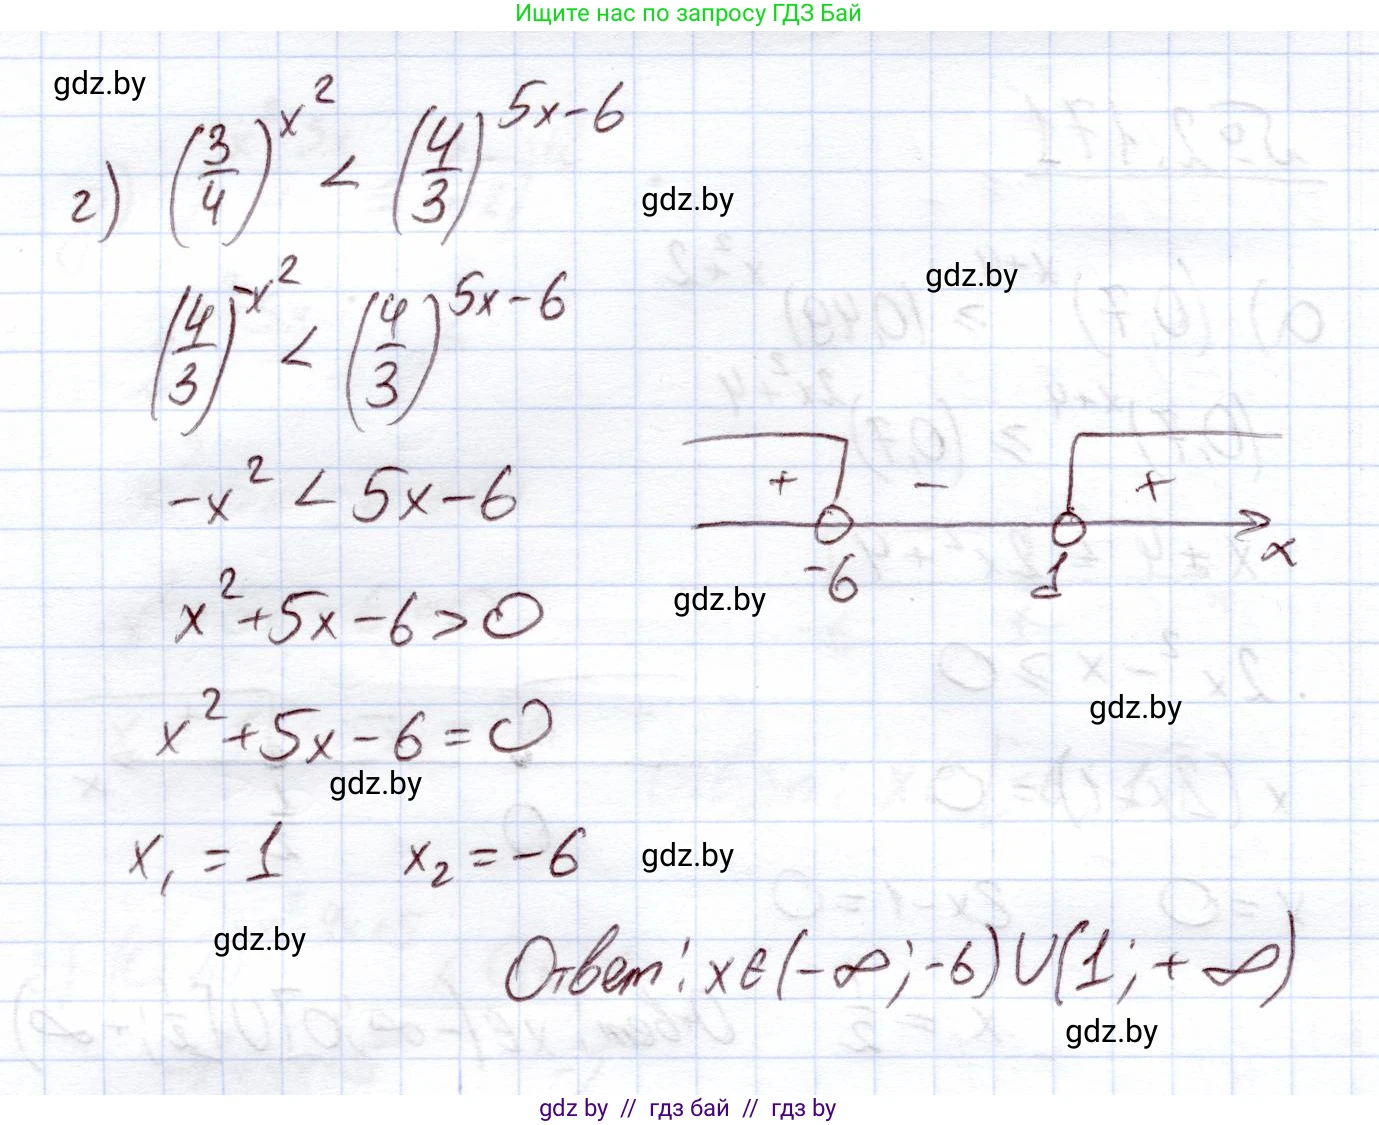 Ищите нас по запросу ГДЗ Бай
gdz.by
г) (3/4)^x² < (4/3)^5x-6
gdz.by
gdz.by
(4/3)^-x² < (4/3)^5x-6
-x² < 5x-6
+ - +
-6 1 x
gdz.by
x²+5x-6>0
gdz.by
x²+5x-6=0
gdz.by
x₁=1 x₂=-6
gdz.by
gdz.by
Ответ: x∈(-∞;-6)∪(1;+∞)
gdz.by
gdz by // гдз бай // гдз by